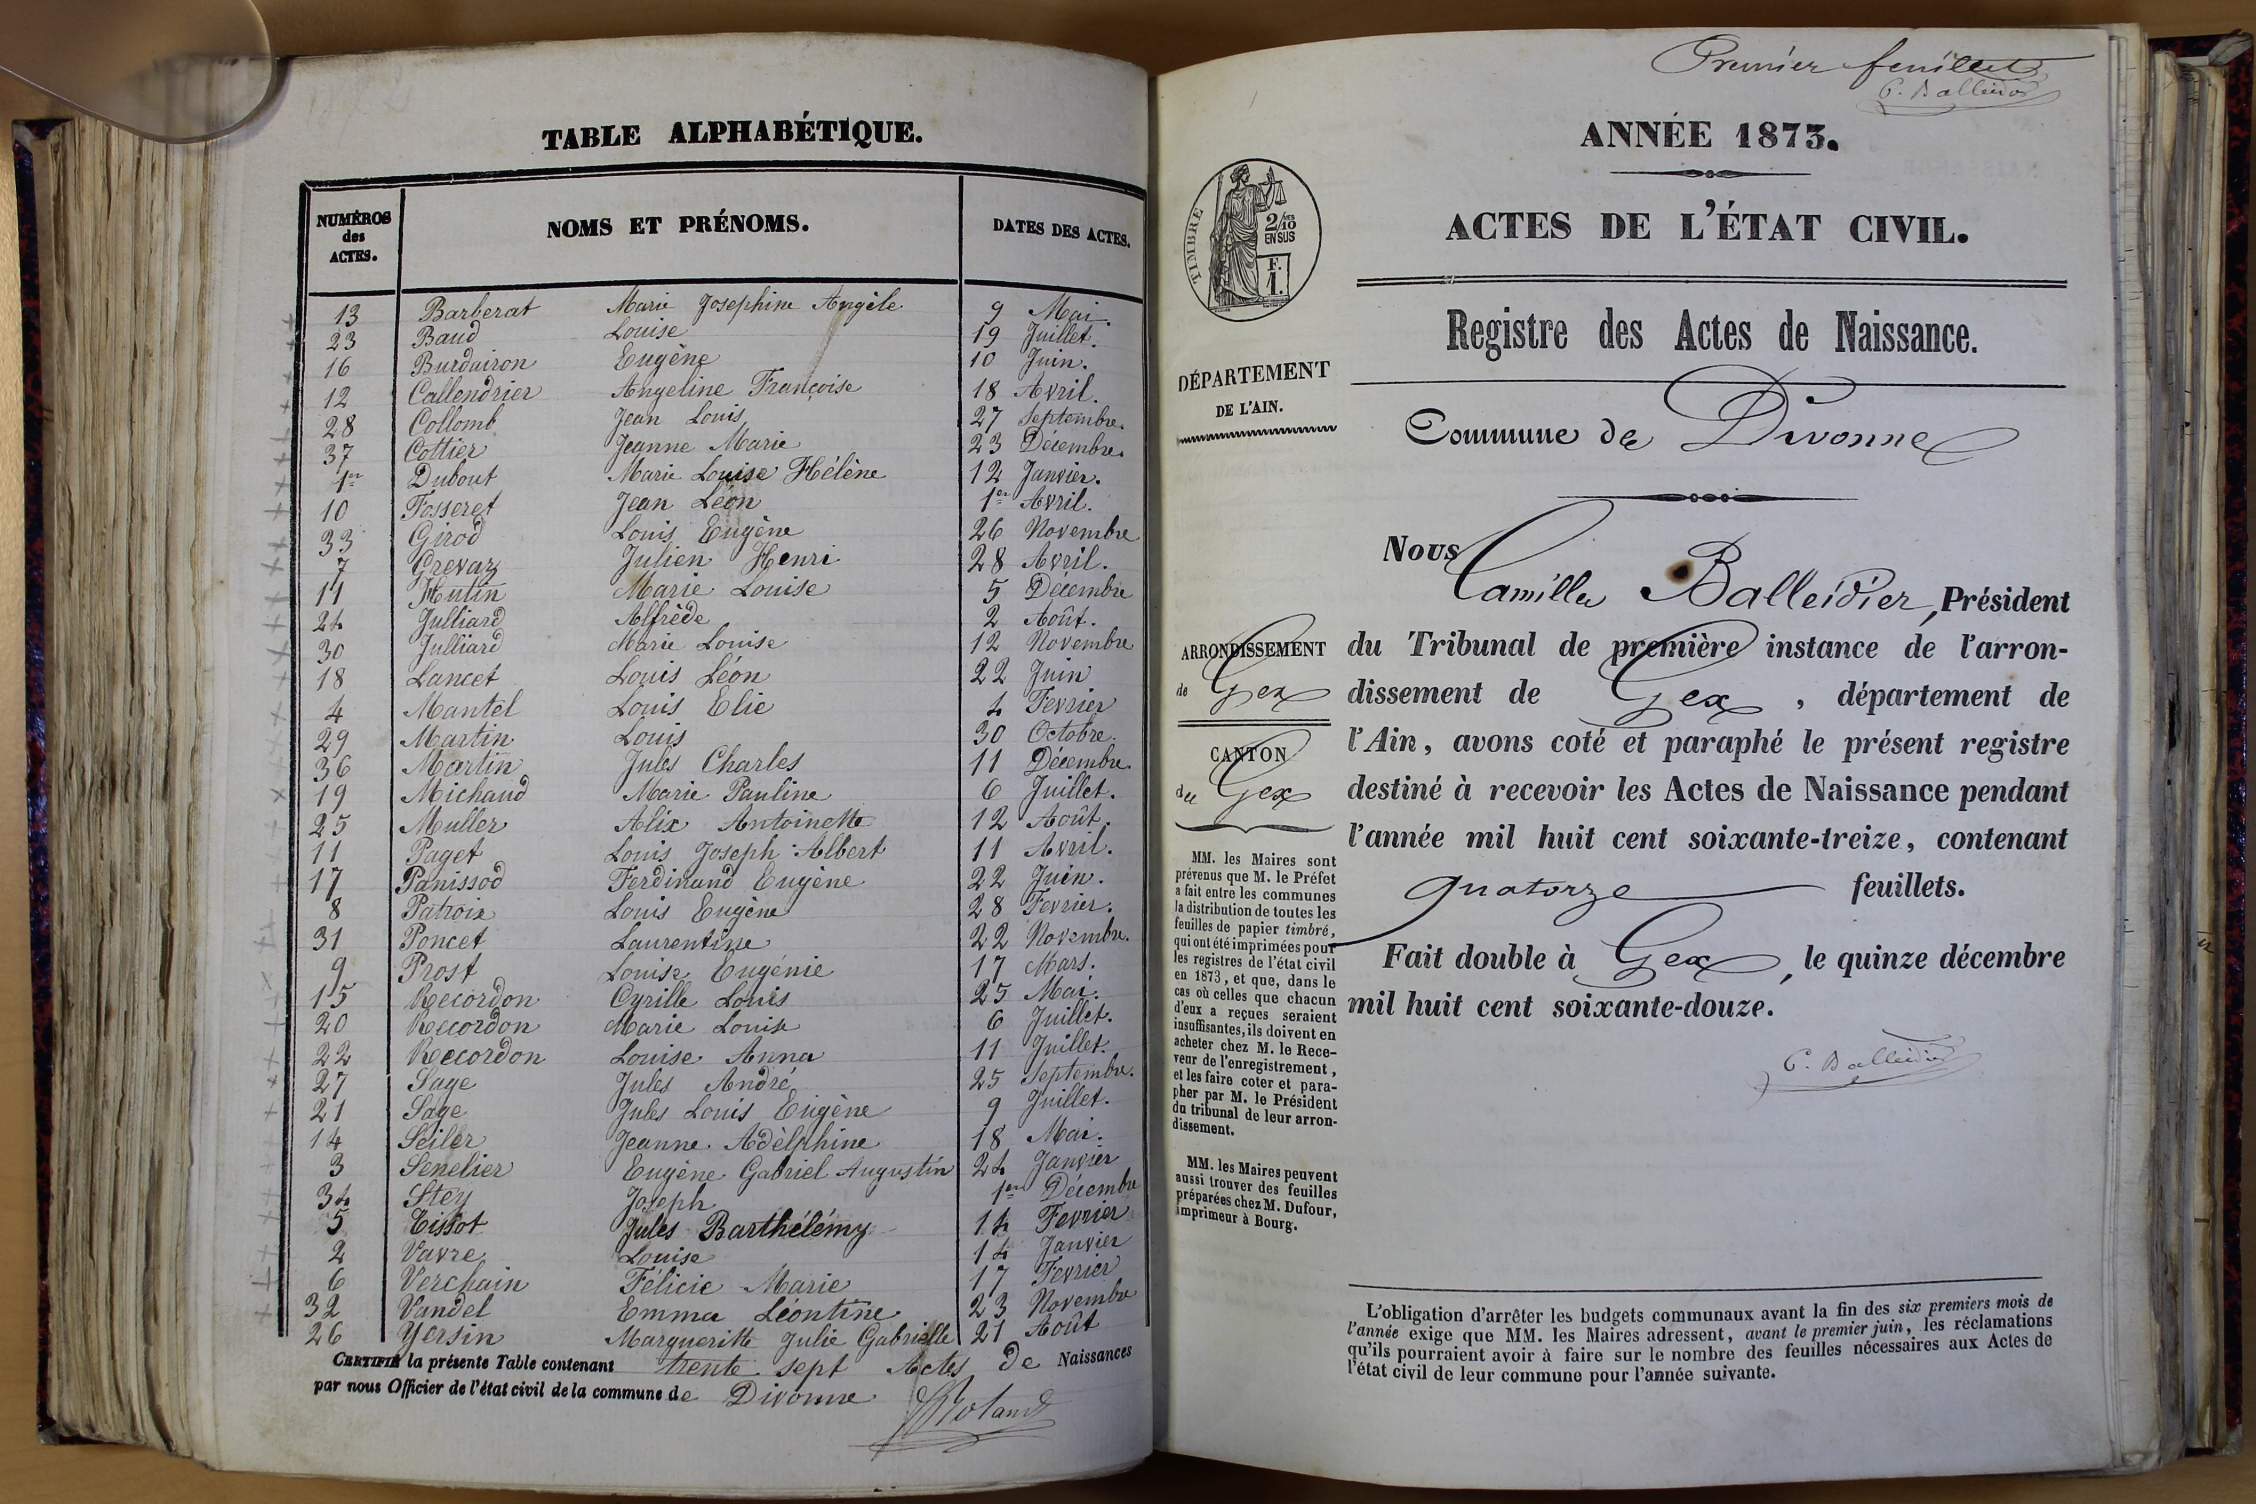 TABLE ALPHABÉTIQUE.
NUMÉROS des ACTES. NOMS ET PRÉNOMS. DATES DES ACTES.
13 Barberat Marie Josephine Angèle 9 Mai.
23 Baud Louise 19 Juillet.
16 Burdairon Eugène 10 Juin.
12 Callendrier Angeline Françoise 18 Avril.
28 Collomb Jean Louis 27 Septembre.
37 Cottier Jeanne Marie 23 Décembre.
1er Dubout Marie Louise Hélène 12 Janvier.
10 Fosseret Jean Léon 1er Avril.
33 Girod Louis Eugène 26 Novembre
7 Grevaz Julien Henri 28 Avril.
11 Hutin Marie Louise 5 Décembre
24 Julliard Alfrède 2 Août.
30 Julliard Marie Louise 12 Novembre
18 Lancet Louis Léon 22 Juin
4 Mantel Louis Elie 4 Fevrier
29 Martin Louis 30 Octobre.
36 Martin Jules Charles 11 Décembre.
19 Michaud Marie Pauline 6 Juillet.
25 Muller Alix Antoinette 12 Août.
11 Paget Louis Joseph Albert 11 Avril.
17 Panissod Ferdinand Eugène 22 Juin.
8 Patroix Louis Eugène 28 Fevrier.
31 Poncet Laurentine 22 Novembre.
9 Prost Louise Eugénie 17 Mars.
15 Recordon Cyrille Louis 25 Mai.
20 Recordon Marie Louise 6 Juillet.
22 Recordon Louise Anna 11 Juillet.
27 Sage Jules André 25 Septembre.
21 Sage Jules Louis Eugène 9 Juillet.
14 Seiler Jeanne Adèlphine 18 Mai.
3 Senelier Eugène Gabriel Augustin 24 Janvier
34 Stey Joseph 1er Décembre
5 Tissot Jules Barthélémy 14 Fevrier
2 Vavre Louise 14 Janvier
6 Verchain Félicie Marie 17 Fevrier
32 Vandel Emma Léontine 23 Novembre
26 Yersin Marguerite Julie Gabrielle 21 Août
CERTIFIÉ la présente Table contenant trente sept Actes de Naissances
par nous Officier de l'état civil de la commune de Divonne
Roland
Premier feuillet
C. Balleidier
ANNÉE 1873.
ACTES DE L'ÉTAT CIVIL.
TIMBRE
2/10 MES
EN SUS
F.
1.
Registre des Actes de Naissance.
DÉPARTEMENT
DE L'AIN.
Commune de Divonne
Nous Camille Balleidier, Président
du Tribunal de première instance de l'arron-
dissement de Gex, département de
l'Ain, avons coté et paraphé le présent registre
destiné à recevoir les Actes de Naissance pendant
l'année mil huit cent soixante-treize, contenant
quatorze feuillets.
Fait double à Gex, le quinze décembre
mil huit cent soixante-douze.
C. Balleidier
ARRONDISSEMENT
de Gex
CANTON
de Gex
MM. les Maires sont
prévenus que M. le Préfet
a fait entre les communes
la distribution de toutes les
feuilles de papier timbré,
qui ont été imprimées pour
les registres de l'état civil
en 1873, et que, dans le
cas où celles que chacun
d'eux a reçues seraient
insuffisantes, ils doivent en
acheter chez M. le Rece-
veur de l'enregistrement,
et les faire coter et para-
pher par M. le Président
du tribunal de leur arron-
dissement.
MM. les Maires peuvent
aussi trouver des feuilles
préparées chez M. Dufour,
imprimeur à Bourg.
L'obligation d'arrêter les budgets communaux avant la fin des six premiers mois de
l'année exige que MM. les Maires adressent, avant le premier juin, les réclamations
qu'ils pourraient avoir à faire sur le nombre des feuilles nécessaires aux Actes de
l'état civil de leur commune pour l'année suivante.